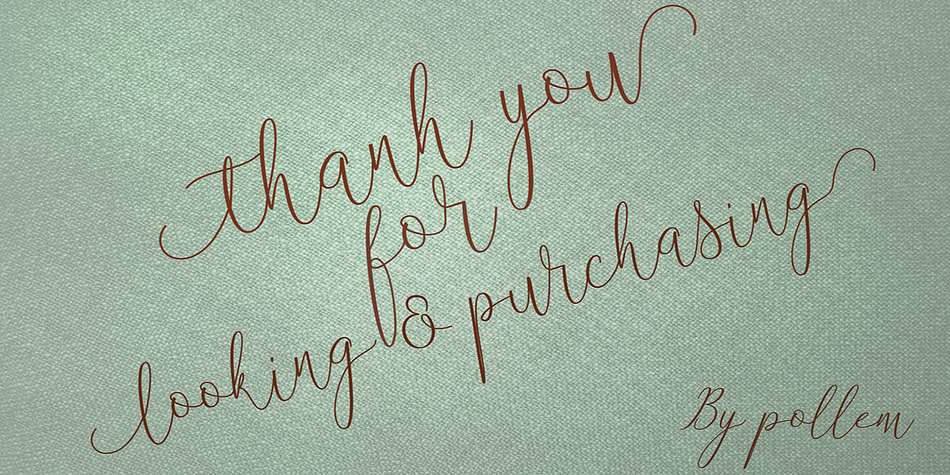 thank you
for
looking & purchasing
By pollem